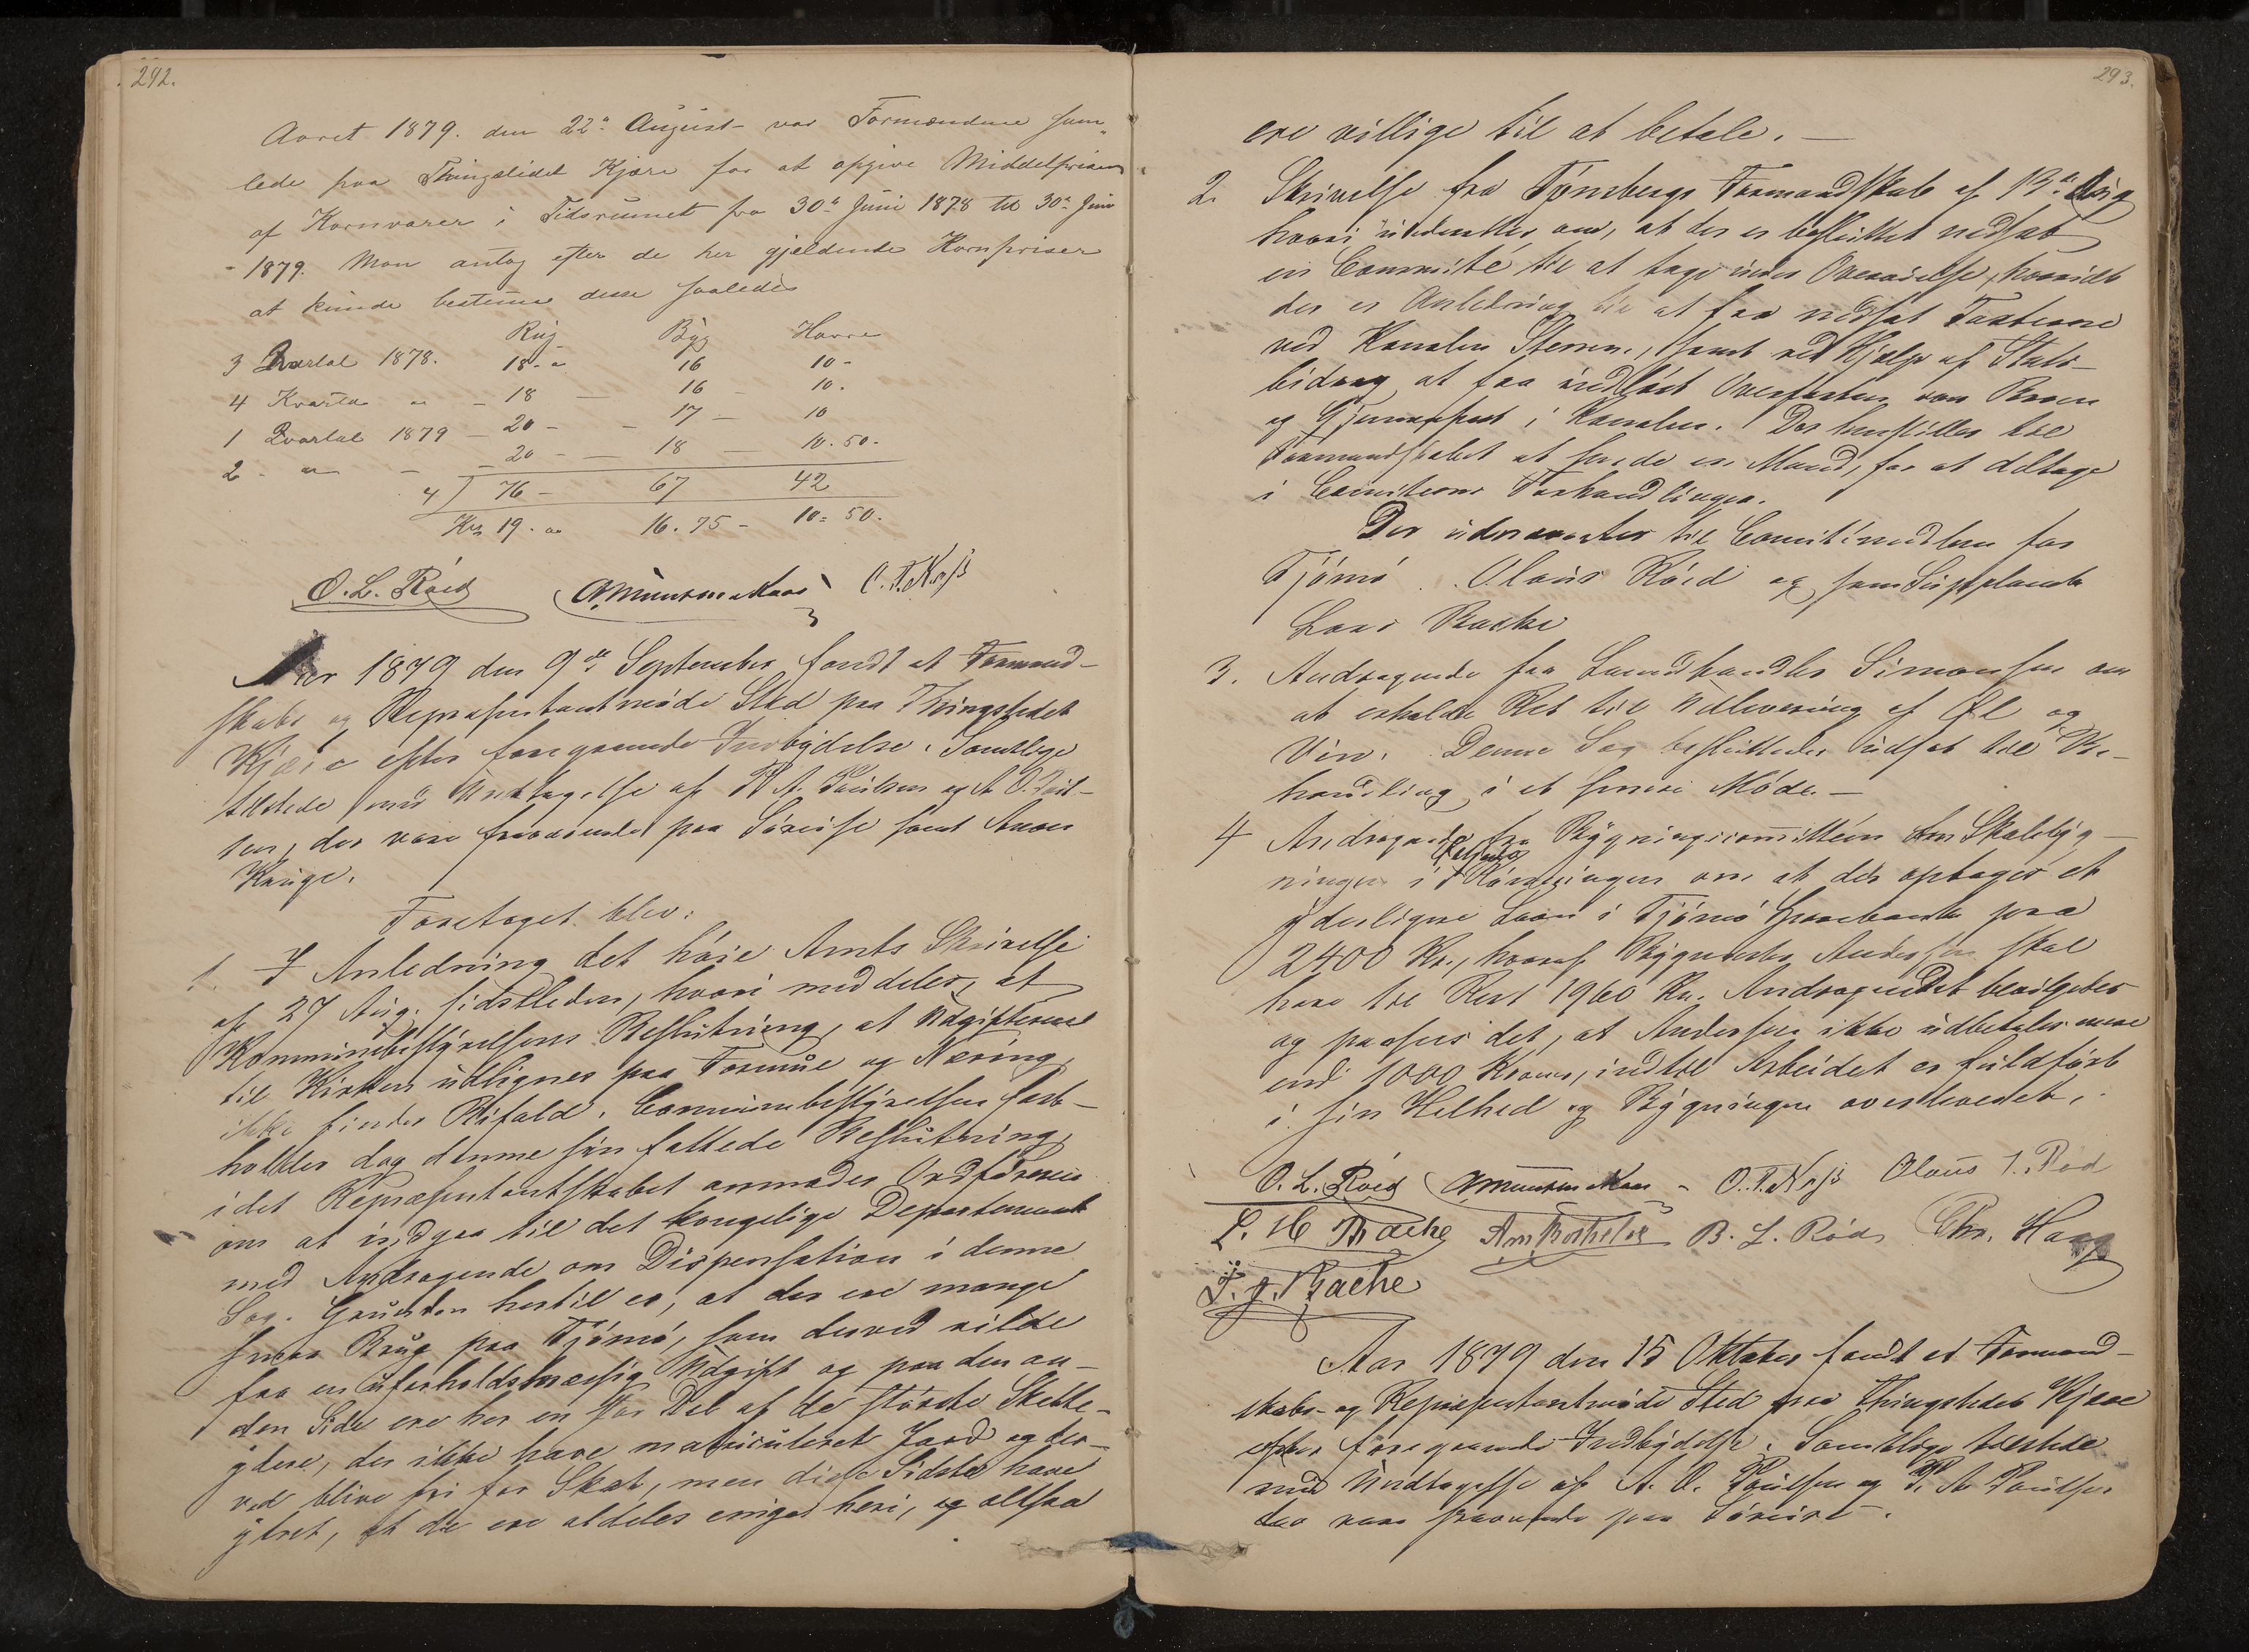 292.
Aaret 1879. den 22de August var Formændene sam-
lede paa Thingstedet Kjære for at opgive Middelprisen
af Kornvarer i Tidsrumet fra 30te Juni 1878 til 30te Juni
1879. Man antog efter de her gjældende Kornpriser
at kunde bestemme disse saaledes
Rug Byg Havre
3 Qvartal 1878. 18 - " 16 10 -
4 Kvartal " - 18 - 16 - 10.
1 Qvartal 1879 - 20 - - 17 - 10
2 - " - - 20 - - 18 - 10. 50 -
4) 76 - 67 42
Kr 19. " 16. 75 - 10 = 50.
O. L. Röed
Aar 1879 den 9de September fandt et Formand-
skabs og Repræsentantmöde Sted paa Thingstedet
Kjære efter foregaaende Indbydelse. Samtlige
tilstede med Undtagelse af P. A. Paulsen og A. O. Poul-
sen, der vare fraværende paa Söreise samt
Krüge.
Foretaget blev:
1. I Anledning det höie Amts Skrivelse
af 27 Aug. sidstleden, hvori meddeles, at
Kommunebestyrelsens Beslutning, at Udgifterne
til Kirken udlignes paa Formue og Næring,
ikke finder Bifald. Communebestyrelsen fast-
holder dog denne sin fattede Beslutning,
idet Repræsentantskabet anmoder Ordföreren
om at indgaa til det kongelige Departement
med Andragende om Dispensation i denne
Sag. Grunden hertil er, at der ere mange
smaa Brug paa Tjömö, som derved vilde
faa en uforholdsmæssig Udgift og paa den an-
den Side ere her en stor Del af de störste Skatte-
ydere, der ikke have matriculeret Jord og der-
ved blive fri for Skat, men disse Sidste have
ytret, at de ere aldeles enige heri, og altsaa
293.
ere villige til at betale. -
2. Skrivelse fra Tönsbergs Formandskab af 19de Aug
hvori underrettes om, at der er besluttet nedsat
en Committe til at tage under Overveielse, hvorvidt
der er Anledning til at faa nedsat Taxterne
ved Kanalen Stenen, samt ved Hjælp af Stats-
bidrag at faa indlöst Overfarten over Broen
og Gjennemfart i Kanalen. Der henstilles til
Formandskabet at sende en Mand, for at deltage
i Comiteens Forhandlinger.
Der udnævntes til Comitémedlem for
Tjömö Olaus Röed og som Suppleant
Lars Bache
3. Andragende fra Landhandler Simonsen om
at erholde Ret til Udlevering af Øl og
Vin. Denne Sag besluttedes udsat til Be-
handling i et senere Möde. -
4 Andragende fra Bygningscomitteen for Skolebyg-
ningen i om at der optages et
yderligere Laan i Tjömö Sparebank paa
2400 Kr., hvoraf Bygmester Andersen skal
have til Rest 1960 Kr. Andragendet bevilgedes
og paasees det, at Andersen ikke udbetales mere
end 1000 Kroner, indtil Arbeidet er fuldfört
i sin Helhed og Bygningen overleveret.
O. L. Röed Olaus J. Röd
L. H Bache B. L. Röd Chr. Haug
J. J. Bache
Aar 1879 den 15 Oktober fandt et Formand-
skabs- og Repræsentantmöde Sted paa Thingstedet Kjære
efter foregaaende Indbydelse. Samtlige tilstede
med Undtagelse af A. O. Poulsen og P. A. Poulsen
der vare fraværende paa Söreise.